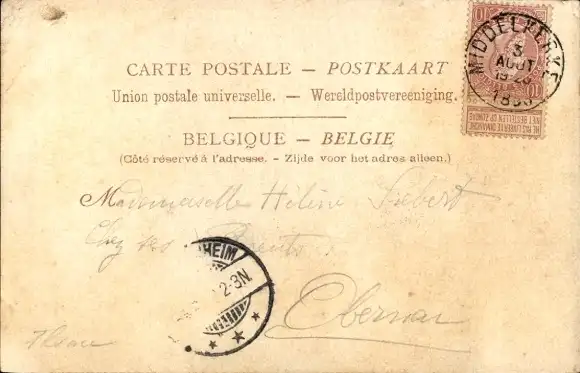 CARTE POSTALE — POSTKAART
Union postale universelle. — Wereldpostvereeniging.
BELGIQUE — BELGIE
(Côté réservé à l'adresse. - Zijde voor het adres alleen.)
10 10
MIDDELKERKE
3
AOUT
NE PAS LIVRER LE DIMANCHE
NIET BESTELLEN OP ZONDAG
Mademoiselle Hélène Siebert
Chez ses Parents
HEIM
2-3N.
Obernai
Elsace